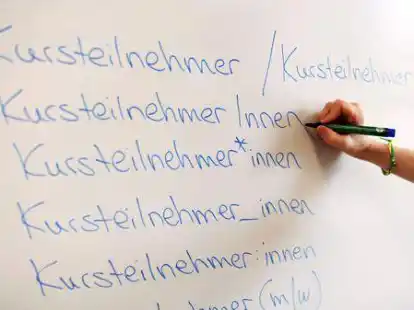 Kursteilnehmer / Kursteilnehmer
KursteilnehmerInnen
Kursteilnehmer*innen
Kursteilnehmer_innen
Kursteilnehmer:innen
(m/w)